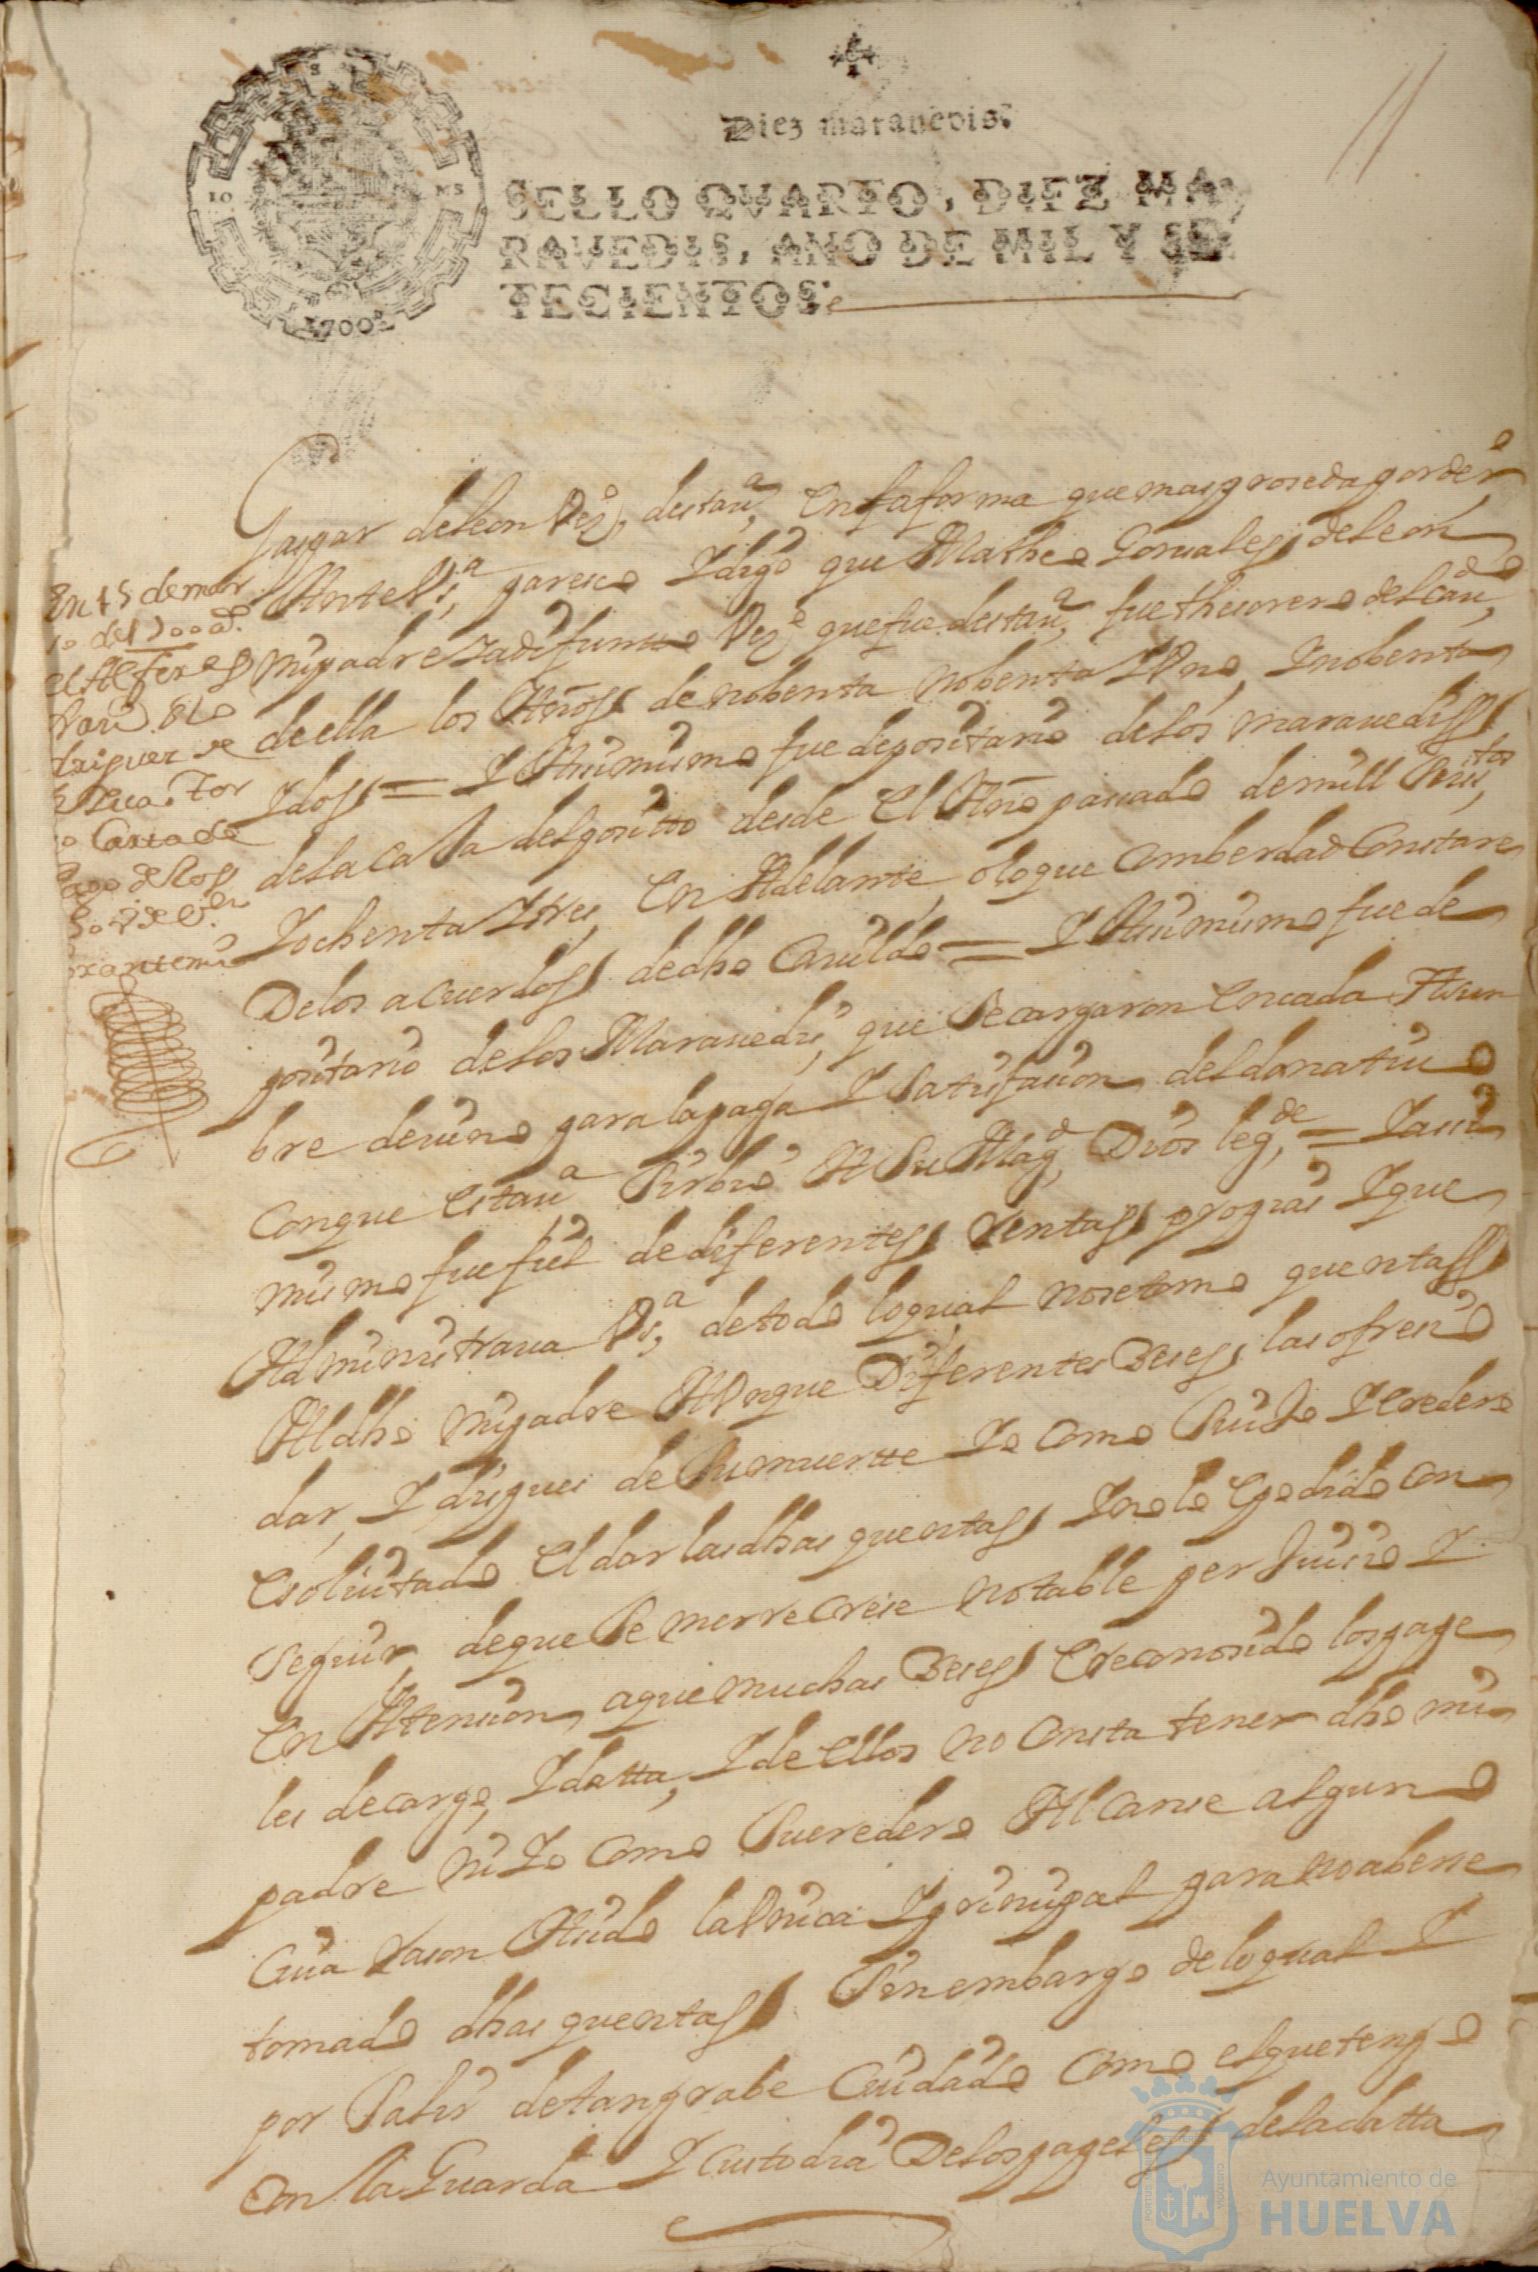 11
Diez maravedis.
SELLO QVARTO, DIEZ MA-
RAVEDIS, AÑO DE MIL Y SE-
TECIENTOS.
1700
Gaspar de leon Vezº destavª en la forma que mas proseda por derº
Ante Vsª paresco I digo que Matheo Gonsales de leon
mi padre ya difunto Vezº que fue destavª fue thesorero del cauº
de ella los Años de nobenta nobenta I Vno I nobenta
I dos = I Asimismo fue depositario de los marauedis
de la casa del posito desde El Año pasado de mill seisºtos
I ochenta I tres En Adelante, o lo que Comberdad Constare
De los acuerdos de dho Cauildo = I Asimismo fue de
positario de los Marauedis que se cargaron En cada Asum
bre de uino para la paga I satisfasion del donatiuo
Con que Estauª Siruio A Su Magd Dios le gde = I asi
mismo fue fiel de diferentes Rentas propias I que
Administraua Vsª de todo lo qual no se tomo quentas
Al dho mi padre AVnque Diferentes Beses las ofresio
dar, I despues de Su muerte Io Como Su hijo I Eredero
E solisitado El dar las dhas quentas I no lo E podido con
seguir, de que Se me rrecrese notable perJuisio I
En Atension a que muchas Beses E reconosido los pape
les de cargo, I datta, I de Ellos no Consta tener dho mi
padre ni Io Como Su eredero Alcanse alguno
Cuia Rason A sido la Vnica I prinsipal para no aberse
tomado dhas quentas Sin embargo de lo qual I
por Salir de tan grabe Cuidado Como el que tengo
Con la Guarda I Custodia De los papeles de la datta
En 15 de mar
so de 1700 as
el Alferes
Juan Ro
driguez de
Carta de
pago de los
ante mi
Ayuntamiento de
HUELVA